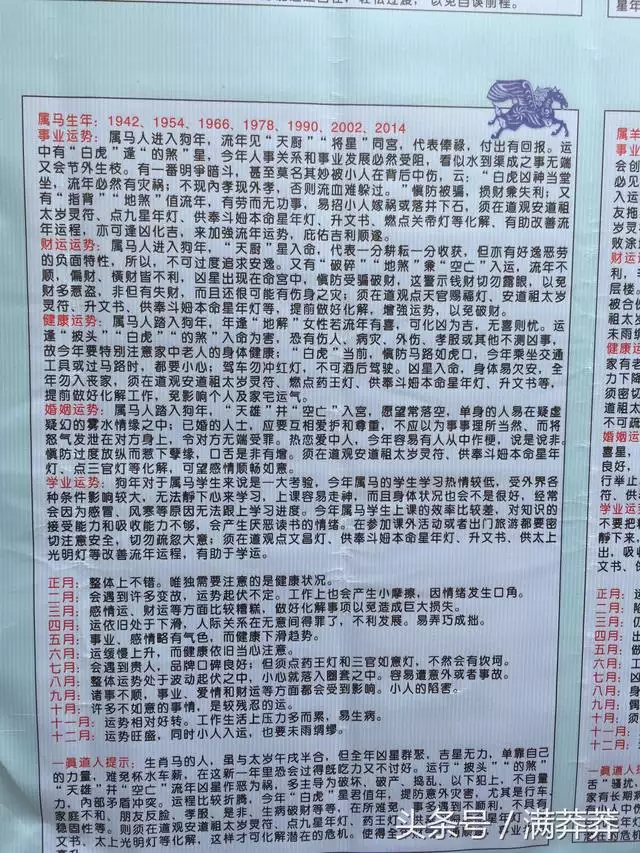 以免自误前程。
属马生年：1942、1954、1966、1978、1990、2002、2014
事业运势：属马人进入狗年，流年见“天厨”“将星”同宫，代表俸禄，付出有回报。运
中有“白虎”逢“的煞”星，今年人事关系和事业发展必然受阻，看似水到渠成之事无端
又会节外生枝。有一番明争暗斗，甚至莫名其妙被小人在背后中伤，云：“白虎凶神当堂
坐，流年必然有灾祸；不现内孝现外孝，否则流血难躲过。”慎防被骗，损财兼失利；又
有“指背”“地煞”值流年，有劳而无功事，易招小人嫁祸或落井下石。须在道观安道祖
太岁灵符、点九星年灯、供奉斗姆本命星年灯、升文书、燃点关帝灯等化解、有助改善流
年运程，亦可逢凶化吉，来加强流年运势，庇佑吉利顺遂。
财运运势：属马人进入狗年，“天厨”星入命，代表一分耕耘一分收获，但亦有好逸恶劳
的负面特性，所以，不可过度追求安逸。又有“破碎”“地煞”兼“空亡”入运，流年不
顺，偏财、横财皆不利，凶星出现在命宫中，慎防受骗破财，这警示钱财切勿露眼，以免
财多惹盗，非但有失财，而且还很可能有伤身之灾；须在道观点天官赐福灯、安道祖太岁
灵符、升文书、供奉斗姆本命星年灯等，提前做好化解，增强运势，以免破财。
健康运势：属马人踏入狗年，年逢“地解”女性若流年有喜，可化凶为吉，无喜则忧。运
逢“披头”“白虎”“的煞”入命为害，恐有伤人、病灾、外伤、孝服或其他不测凶事，
故今年要特别注意家中老人的身体健康；“白虎”当前，慎防马路如虎口，今年乘坐交通
工具或过马路时，都要小心；驾车勿冲红灯，不可酒后驾驶。凶星入命，身体易欠安，全
年勿入丧家，须在道观安道祖太岁灵符、燃点药王灯、供奉斗姆本命星年灯、升文书等，
提前做好化解工作，免影响个人及家宅运气。
婚姻运势：属马人踏入狗年，“天雄”并“空亡”入宫，愿望常落空，单身的人易在疑虚
疑幻的雾水情缘之中；已婚的人士，应要互相爱护和尊重，不应以为事事理所当然、而将
怒气发泄在对方身上，令对方无端受罪。热恋爱中人，今年容易有人从中作梗，说是说非。
慎防过度放纵而惹下孽缘，口舌是非有增。须在道观安道祖太岁灵符、供奉斗姆本命星年
灯、点三官灯等化解，可望感情顺畅如意。
学业运势：狗年对于属马学生来说是一大考验，今年属马的学生学习热情较低，受外界各
种条件影响较大，无法静下心来学习，上课容易走神，而且身体状况也会不是很好，经常
会因为感冒、风寒等原因无法跟上学习进度。今年属马学生上课的效率比较差，对知识的
接受能力和吸收能力不够，会产生厌恶读书的情绪。在参加课外活动或者出门旅游都要密
切注意安全，切勿疏忽大意；须在道观点文昌灯、供奉斗姆本命星年灯、升文书、供太上
光明灯等改善流年运程，有助于学运。
正月：整体上不错。唯独需要注意的是健康状况。
二月：会遇到许多变故，运势起伏不定。工作上也会产生小摩擦，因情绪发生口角。
三月：感情运、财运等方面比较糟糕，做好化解事项以免造成巨大损失。
四月：运依旧处于下滑，人际关系在无意间得罪了，不利发展。易弄巧成拙。
五月：事业、感情略有气色，而健康下滑趋势。
六月：运缓慢上升，而健康依旧当心注意。
七月：会遇到贵人，品牌口碑良好；但须点药王灯和三官如意灯，不然会有坎坷。
八月：整体运势处于波动起伏之中，小心就落入圈套之中。容易遭意外或者事故。
九月：诸事不顺，事业、爱情和财运等方面都会受到影响。小人的陷害。
十月：许多不如意的事情，是较残忍的运。
十一月：运势相对好转。工作生活上压力多而累，易生病。
十二月：运势旺盛，同时小人入运，也要未雨绸缪。
一真道人提示：生肖马的人，虽与太岁午戌半合，但全年凶星群聚，吉星无力，单靠自己
的力量，难免杯水车薪，在这新一年里恐会过得既吃力又不讨好。运行“披头”“的煞”
“天雄”并“空亡”流年凶星作恶为祸，多主导为破坏、破产、捣乱、以下犯上，不自量
力，内部矛盾冲突。运程比较折腾，今年在“白虎”星君值年，提防意外灾害，尤其是行车、
家庭不和、朋友反脸、孝服、是非、生病破财等等，在所难免，事多遇到不顺利，不具有
稳固性等。则须在道观安道祖太岁灵符、点九星年灯、药王灯、
文书、太上光明灯等化解，这样才可化解潜在的危机。使得全
头条号／满莽莽